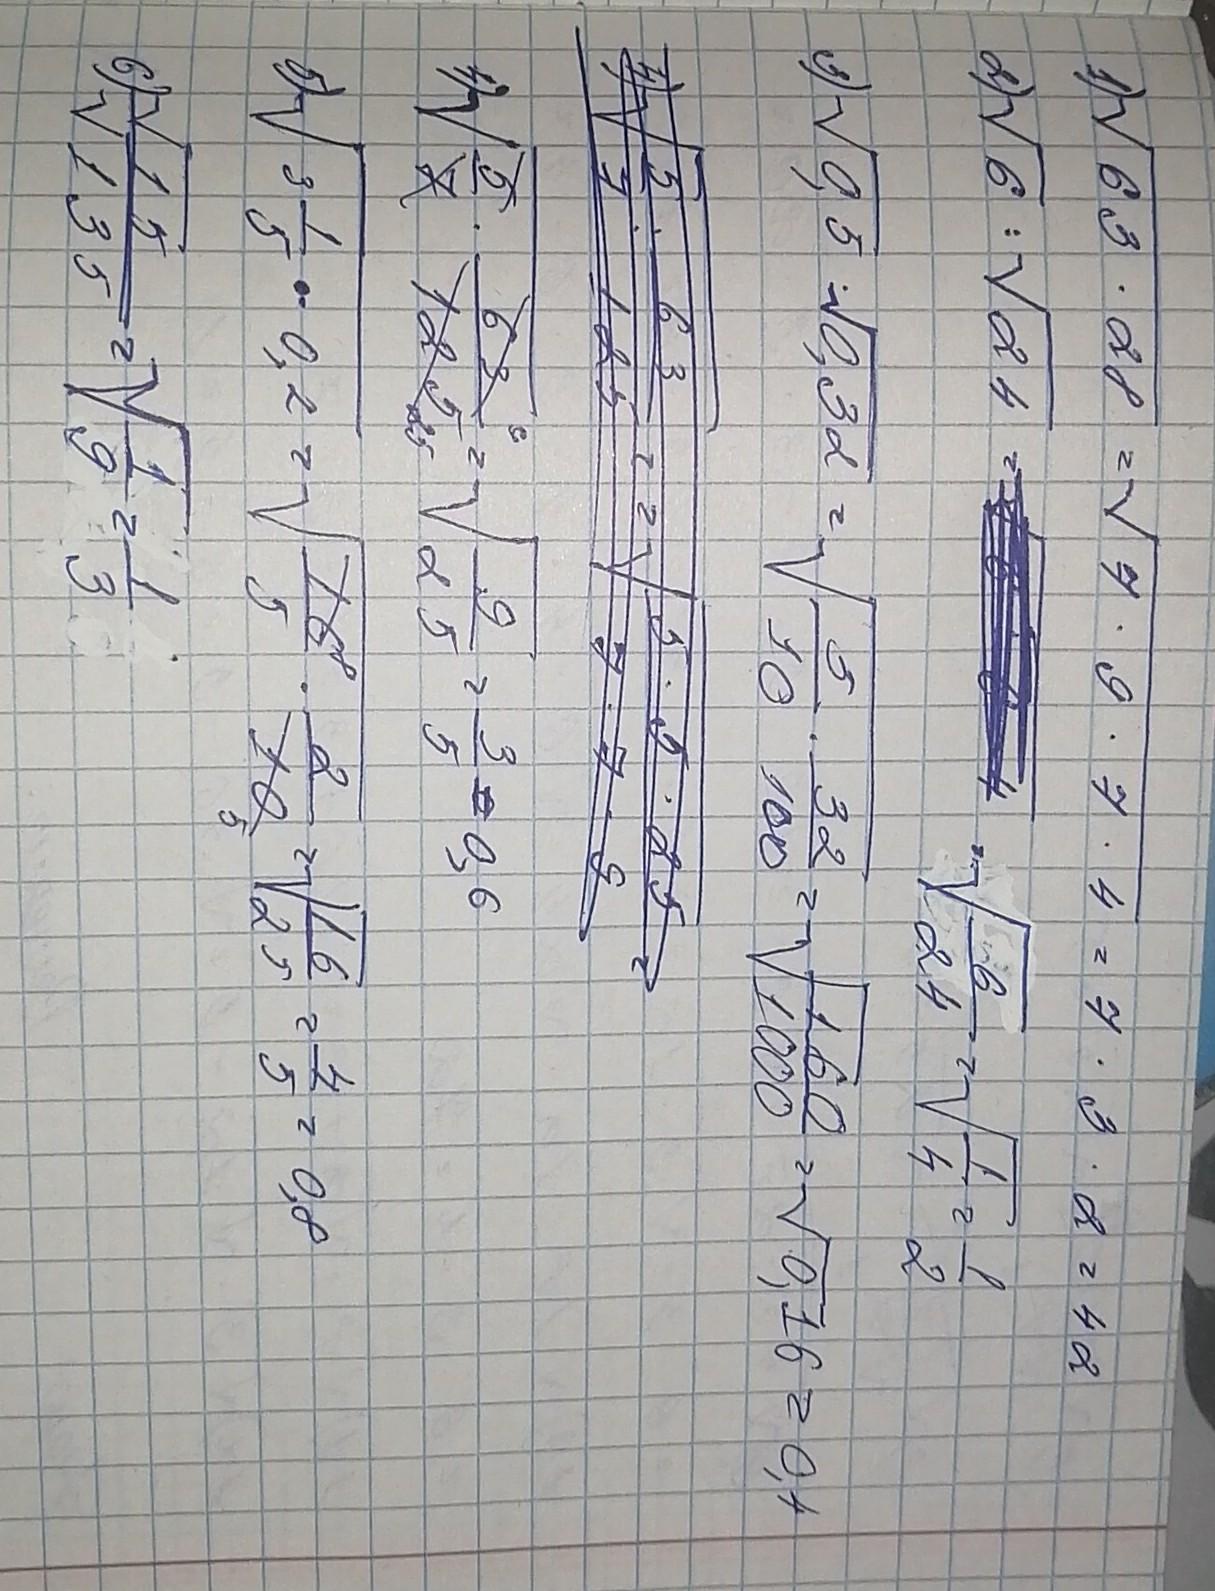 1) √63 · 28 = √7 · 9 · 7 · 4 = 7 · 3 · 2 = 42
2) √6 : √24 = √6/24 = √1/4 = 1/2
3) √0,5 · √0,32 = √5/10 · 32/100 = √160/1000 = √0,16 = 0,4
4) √5/7 · 63/125 = = √5 · 9 · 25/7 · 7 · 9 =
4) √5/7 · 63/125 9/25 = √9/25 = 3/5 = 0,6
5) √3 1/5 · 0,2 = √16/5 · 2/10 5 = √16/25 = 4/5 = 0,8
6) √15/√135 = √1/9 = 1/3